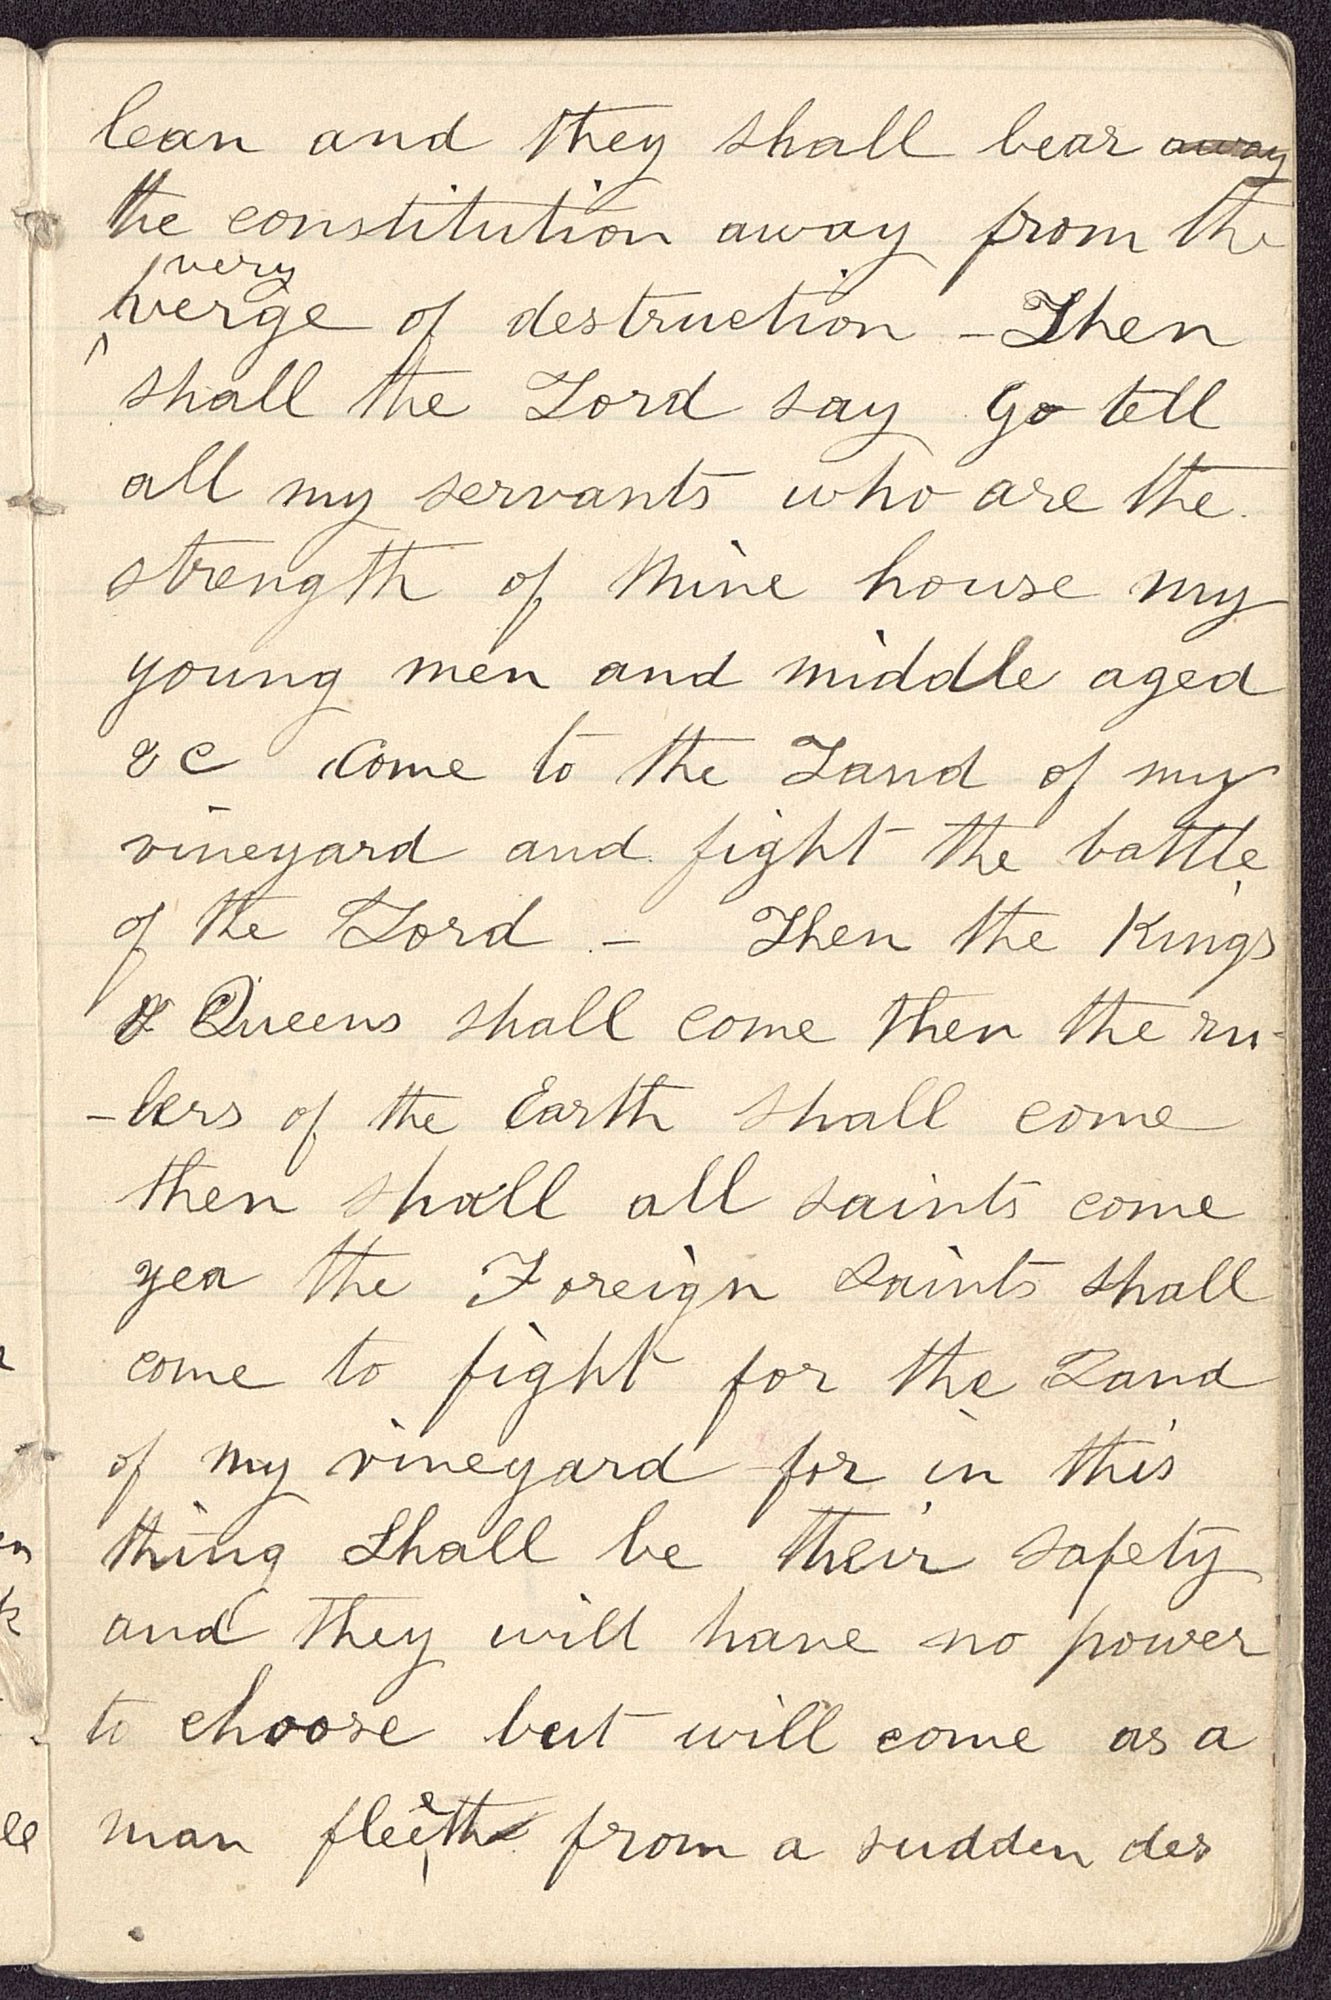 lean and they shall bear away
the constitution away from the
very
verge of destruction – Then
shall the Lord say Go tell
all my servants who are the
strength of mine house my
young men and middle aged
&c Come to the Land of my
vineyard and fight the battle
of the Lord – Then the Kings
& Queens shall come then the ru-
-lers of the Earth shall come
then shall all saints come
yea the Foreign Saints shall
come to fight for the Land
of my vineyard for in this
thing Shall be their safety
and they will have no power
to choose but will come as a
man fleeeth from a sudden des